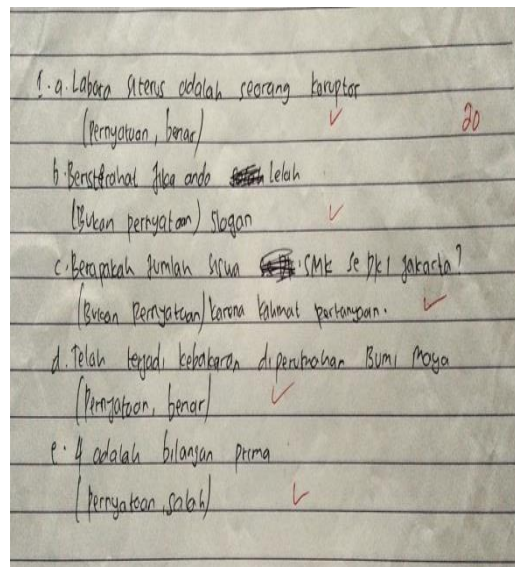 1. a. Labora Siterus adalah seorang koruptor
(Pernyataan, benar)
20
b. Beristirahat jika anda lelah
(Bukan pernyataan) slogan
c. Berapakah jumlah siswa SMK se DKI Jakarta?
(Bukan Pernyataan) karena kalimat pertanyaan.
d. Telah terjadi kebakaran diperumahan Bumi Maya
(Pernyataan, benar)
e. 4 adalah bilangan prima
(Pernyataan, salah)